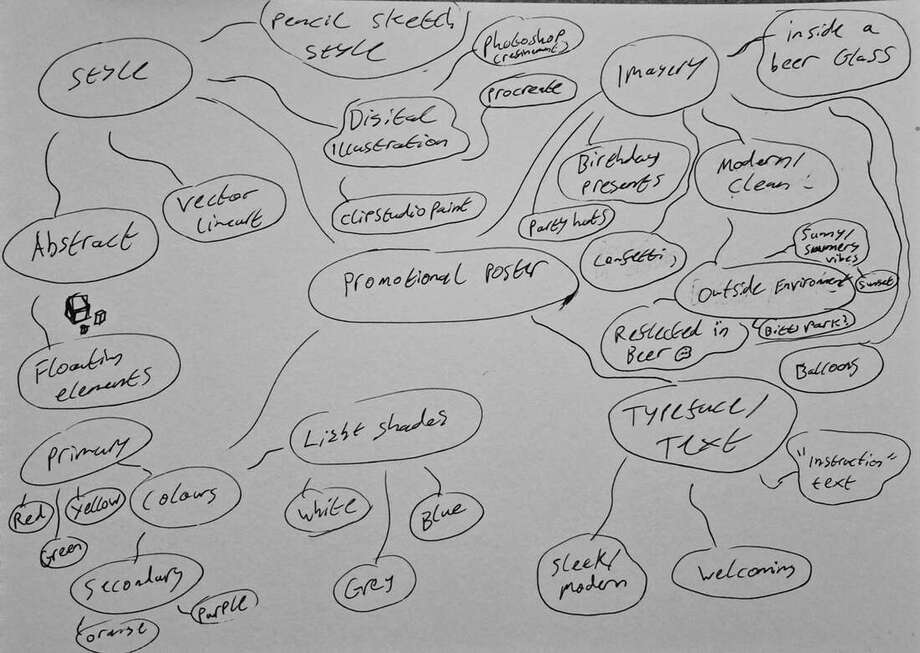 Style
Pencil sketch
style
Photoshop
(refinement)
Procreate
Digital
Illustration
Clip studio paint
Vector
lineart
Abstract
Floating
elements
Imagery
inside a
beer Glass
Birthday
presents
Modern/
clean
Party hats
Confetti
Sunny/
summery
vibes
Outside Enviroment
Sunset
Reflected in
Beer
Park?
Balloons
Promotional Poster
Primary
Red
Yellow
Green
Colours
Secondary
Orange
Purple
Light shades
White
Grey
Blue
Typeface/
Text
"Instruction"
text
Sleek/
modern
Welcoming